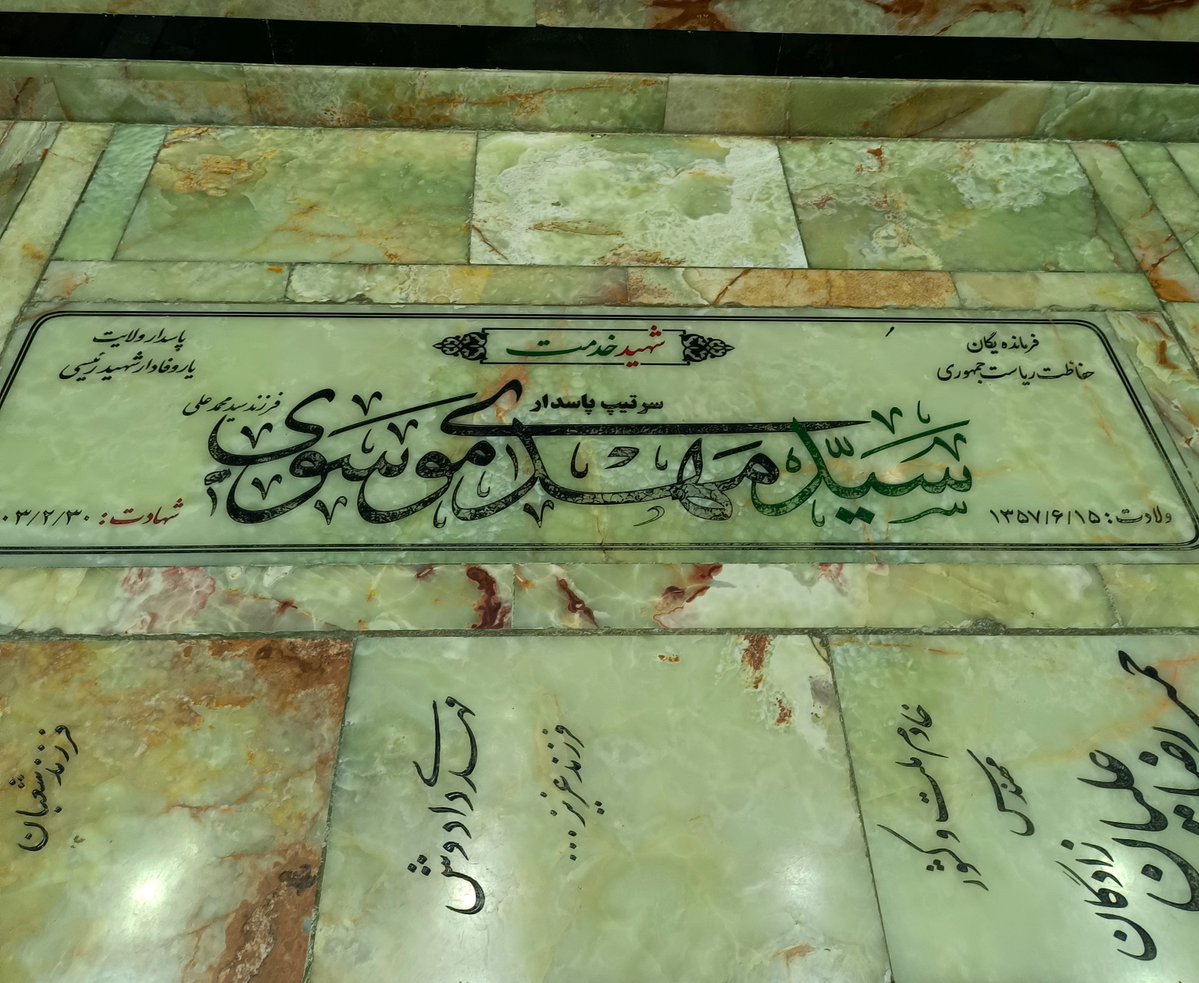 شهید خدمت
فرمانده یگان
حفاظت ریاست جمهوری
پاسدار ولایت
یار وفادار شهید رئیسی
سرتیپ پاسدار
فرزند سید محمد علی
سیّد مهدی موسوی
ولادت: ۱۳۵۷/۶/۱۵
شهادت: ۰۳/۲/۳۰
خادم ملت و کشور
مهندس
زادگان
مهدی دادوش
فرزند عزیز...
فرزند شعبان